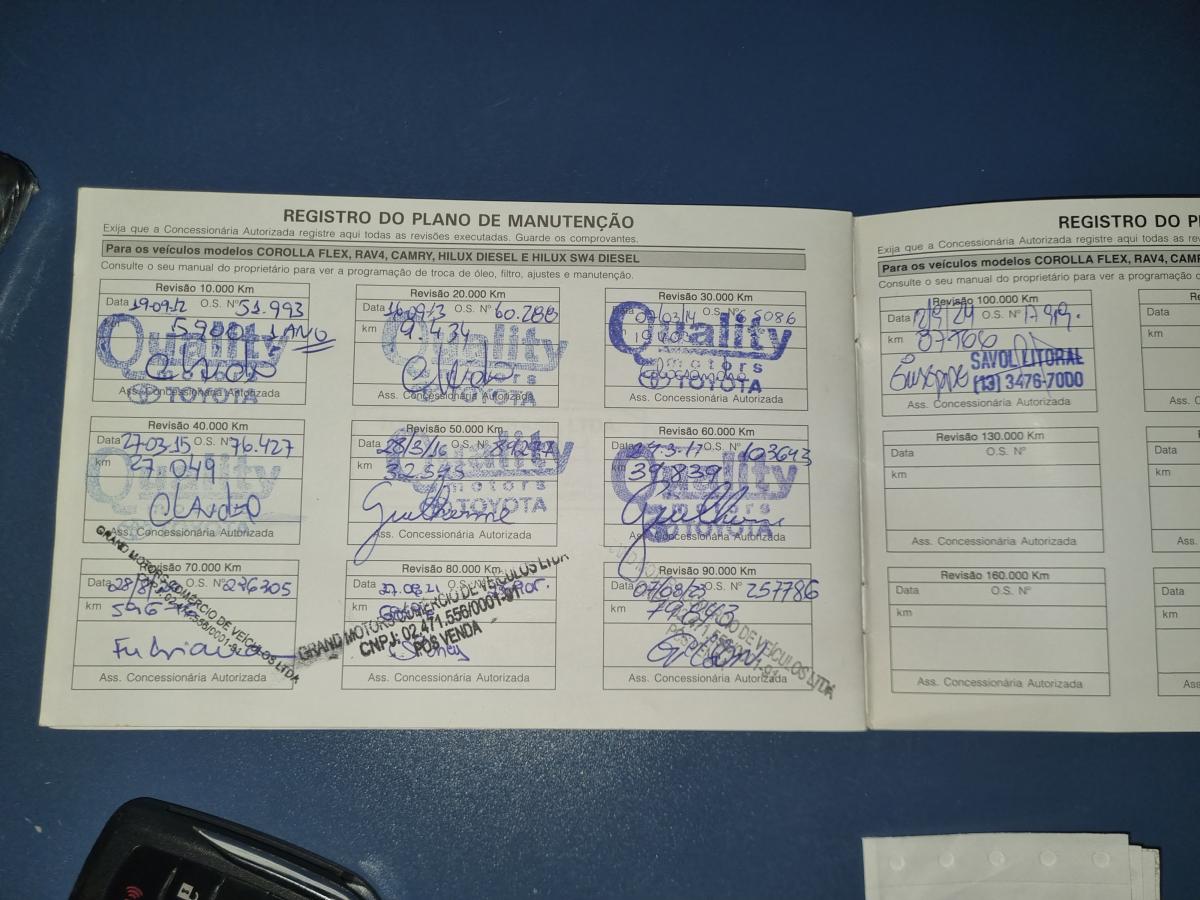 REGISTRO DO PLANO DE MANUTENÇÃO
Exija que a Concessionária Autorizada registre aqui todas as revisões executadas. Guarde os comprovantes.
Para os veículos modelos COROLLA FLEX, RAV4, CAMRY, HILUX DIESEL E HILUX SW4 DIESEL
Consulte o seu manual do proprietário para ver a programação de troca de óleo, filtro, ajustes e manutenção.
Revisão 10.000 Km
Data 19-09-12 O.S. Nº 51.993
5900 1 ANO
Quality
Ass. Concessionária Autorizada
TOYOTA
Revisão 20.000 Km
Data 16.09.13 O.S. Nº 60.288
km 9.434
Quality
motors
Ass. Concessionária Autorizada
TOYOTA
Revisão 30.000 Km
Data 07/03/14 O.S. Nº 5086
km
Quality
motors
TOYOTA
Ass. Concessionária Autorizada
Revisão 40.000 Km
Data 27.03.15 O.S. Nº 76.427
km 27.049
Quality
Ass. Concessionária Autorizada
Revisão 50.000 Km
Data 28/3/16 O.S. Nº
km 32.545
Quality
motors
TOYOTA
Guilherme
Ass. Concessionária Autorizada
Revisão 60.000 Km
Data 27-3-17 O.S. Nº 103643
km 39.839
Quality
motors
Guilherme
TOYOTA
Ass. Concessionária Autorizada
Revisão 70.000 Km
Data O.S. Nº 276305
km
GRAND MOTORS COMÉRCIO DE VEÍCULOS LTDA
CNPJ: 02.471.556/0001-91
Ass. Concessionária Autorizada
Revisão 80.000 Km
Data O.S. Nº
km
GRAND MOTORS COMÉRCIO DE VEÍCULOS LTDA
CNPJ: 02.471.556/0001-91
PÓS VENDA
Ass. Concessionária Autorizada
Revisão 90.000 Km
Data 07/08/23 O.S. Nº 257786
km
DE VEÍCULOS LTDA
Ass. Concessionária Autorizada
REGISTRO DO P
Exija que a Concessionária Autorizada registre aqui todas as
Para os veículos modelos COROLLA FLEX, RAV4, CAM
Consulte o seu manual do proprietário para ver a programação
Revisão 100.000 Km
Data O.S. Nº
km 87766
Giuseppe
SAVOL LITORAL
(13) 3476-7000
Ass. Concessionária Autorizada
Data
km
Ass. C
Revisão 130.000 Km
Data O.S. Nº
km
Ass. Concessionária Autorizada
Data
km
Ass.
Revisão 160.000 Km
Data O.S. Nº
km
Ass. Concessionária Autorizada
Data
km
Ass.